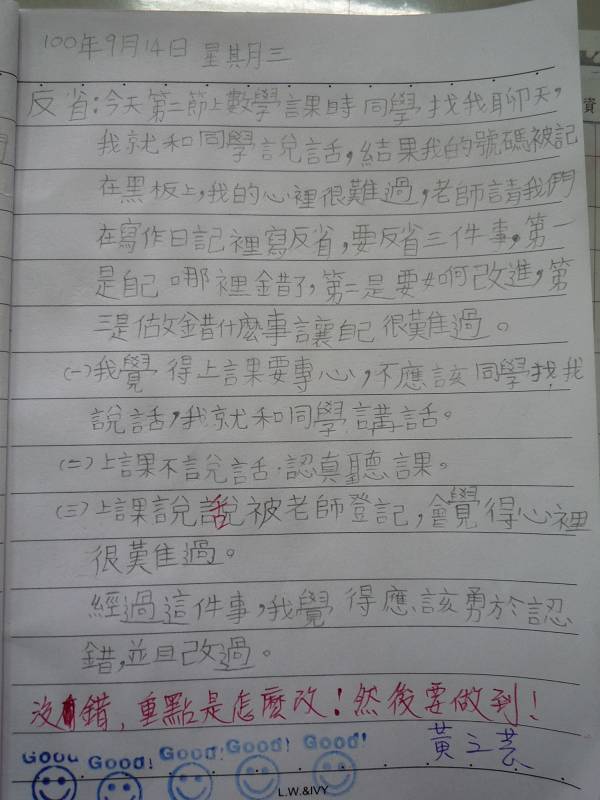 100年9月14日 星期三
反省：今天第二節上數學課時同學找我聊天，
我就和同學說話，結果我的號碼被記
在黑板上，我的心裡很難過，老師請我們
在寫作日記裡寫反省，要反省三件事，第一
是自己哪裡錯了，第二是要如何改進，第
三是做錯什麼事讓自己很難過。
(一)我覺得上課要專心，不應該同學找我
說話，我就和同學講話。
(二)上課不說話，認真聽課。
(三)上課說話被老師登記，會覺得心裡
很難過。
經過這件事，我覺得應該勇於認
錯，並且改過。
沒錯，重點是怎麼改！然後要做到！
Good! Good! Good! Good! Good!
L.W.&IVY